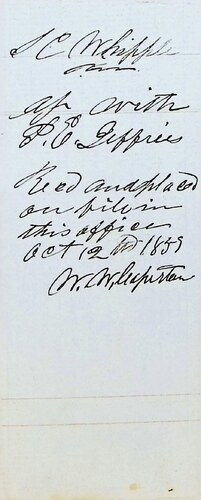 S C Whipple
af with
P. E. Jeffries
Recd and placed
on file in
this office
Oct 12th 1859
W. W. Caperton